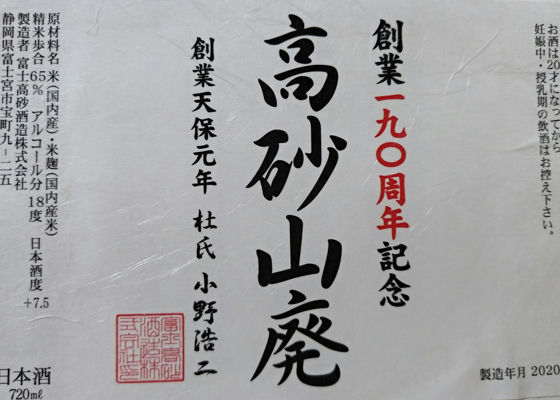 お酒は20才になってから
妊娠中・授乳期の飲酒はお控え下さい。
創業一九〇周年記念
高砂山廃
創業天保元年 杜氏 小野浩二
原材料名 米(国内産)・米麹(国内産米)
精米歩合 65% アルコール分 18度 日本酒度 +7.5
製造者 富士高砂酒造株式会社
静岡県富士宮市宝町九−二五
日本酒
720ml
製造年月 2020